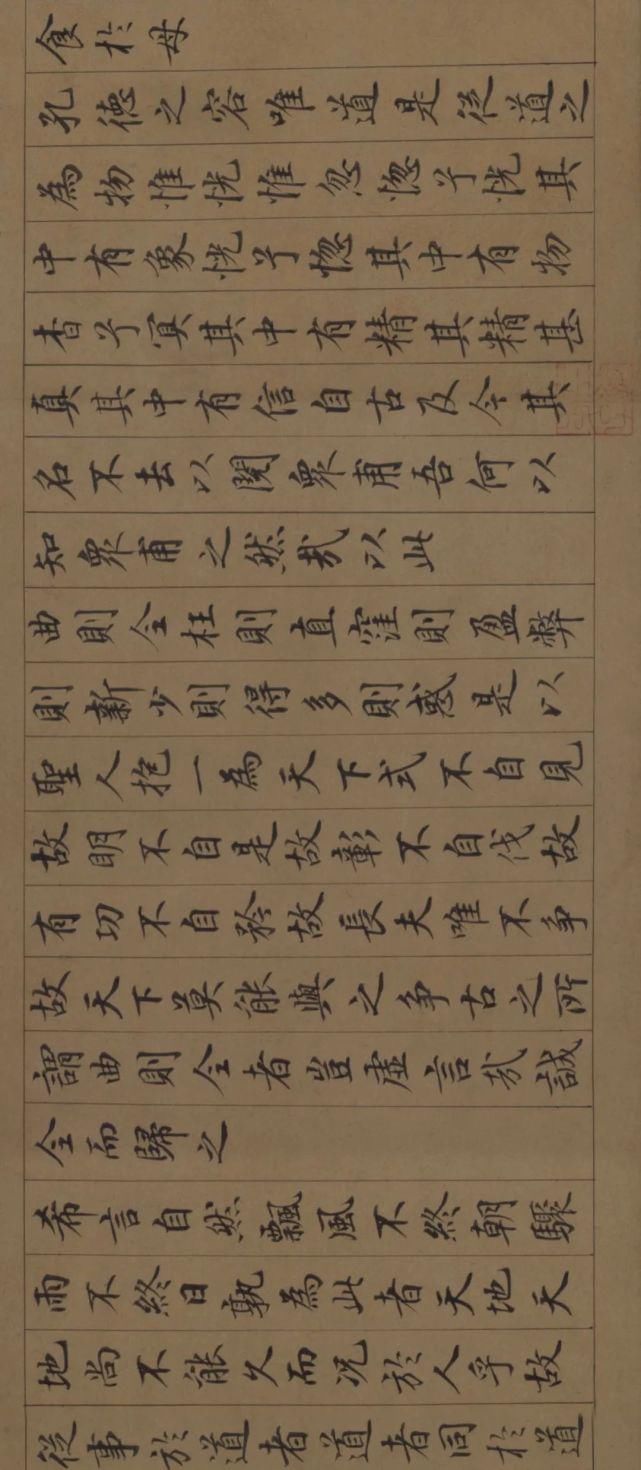 食於母
孔德之容唯道是從道之
為物惟恍惟忽惚兮恍其
中有象恍兮惚其中有物
杳兮冥其中有精其精甚
真其中有信自古及今其
名不去以閱眾甫吾何以
知眾甫之然哉以此
曲則全枉則直窪則盈弊
則新少則得多則惑是以
聖人抱一為天下式不自見
故明不自是故彰不自伐故
有功不自矜故長夫唯不爭
故天下莫能與之爭古之所
謂曲則全者豈虛言哉誠
全而歸之
希言自然飄風不終朝驟
雨不終日孰為此者天地天
地尚不能久而況於人乎故
從事於道者道者同於道